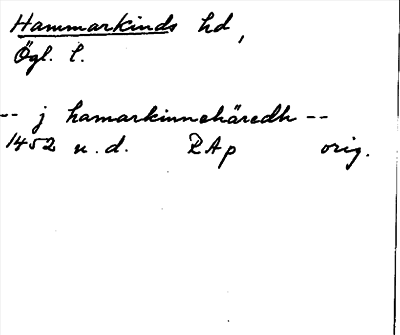 Hammarkinds hd,
Ögl. l.
-- j hamarkinnehäredh --
1452 u.d. RAp orig.